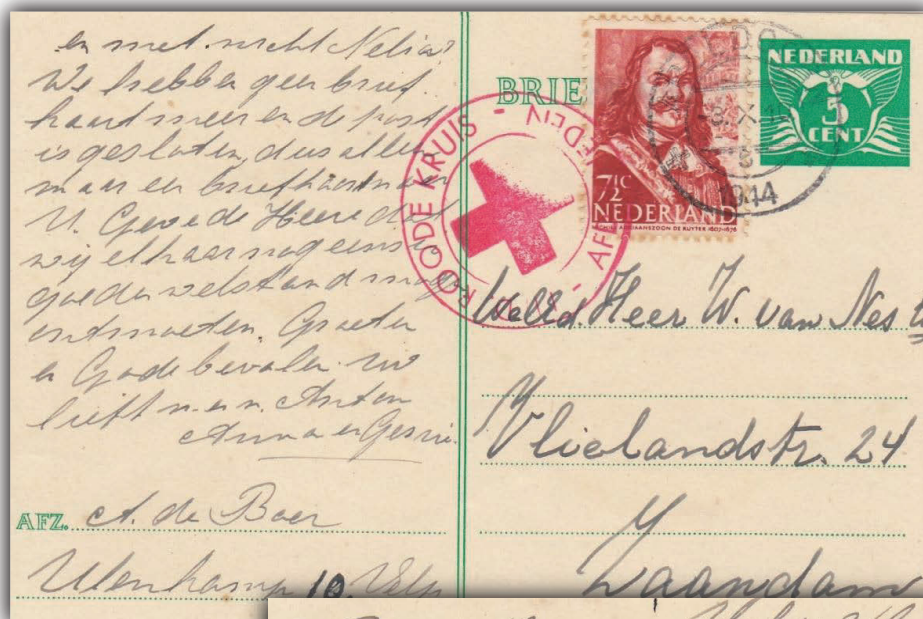 en met nicht Nelia?
We hebben geen brief
kaart meer en de post
is gesloten, dus alleen
maar een briefkaart van
U. Geve de Heere dat
wij elkaar nog eens in
goede welstand mogen
ontmoeten. Groeten
en Gode bevolen uw
lieft. n. en n. Anton
Anna en Gerrie.
AFZ. A. de Boer
10. Velp
BRIE
ROODE KRUIS -
NEDERLAND
5
CENT
1944
7½c
NEDERLAND
MICHIEL ADRIAANSZOON DE RUYTER 1607-1676
WelEd. Heer W. van Nes
Vlielandstr. 24
Zaandam